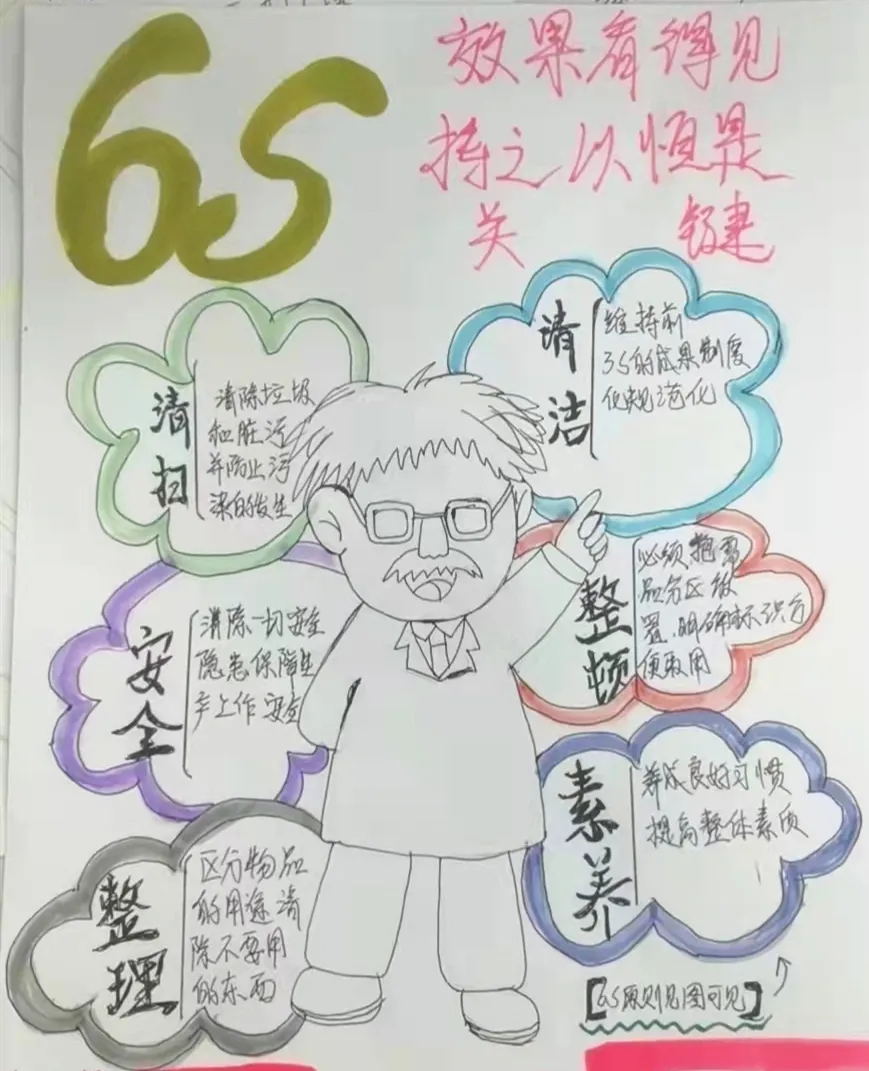 6S
效果看得见
持之以恒是
关 键
清扫
清除垃圾
和脏污
并防止污
染的发生
清洁
维持前
3S的成果制度
化规范化
安全
消除一切安全
隐患保障生
产工作安全
整顿
必须把需
品分区放
置明确标识方
便取用
整理
区分物品
的用途清
除不要用
的东西
素养
养成良好习惯
提高整体素质
【6S原则见图可见】